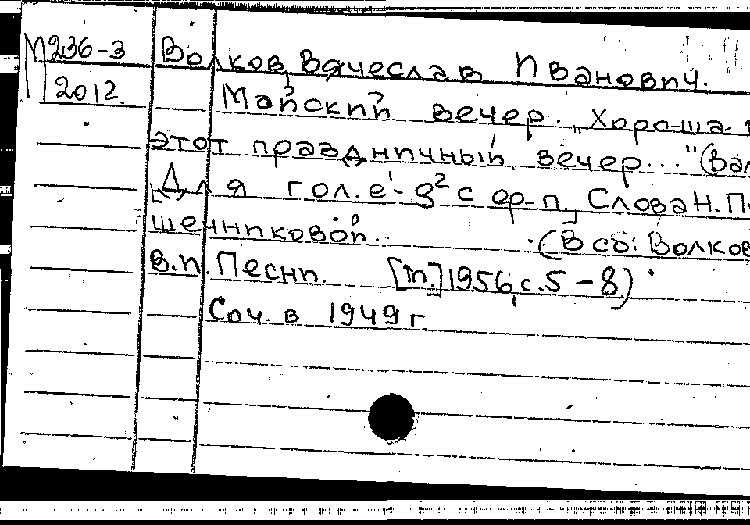 М236-3 Волков, Вячеслав Иванович.
2012 Майский вечер. „Хороша
этот праздничный вечер..."
Для гол. e¹-g² с ор-п, Слова Н.
шенниковой. (В сб: Волков
В.И. Песни. [М.] 1956, с. 5-8)
Соч. в 1949 г